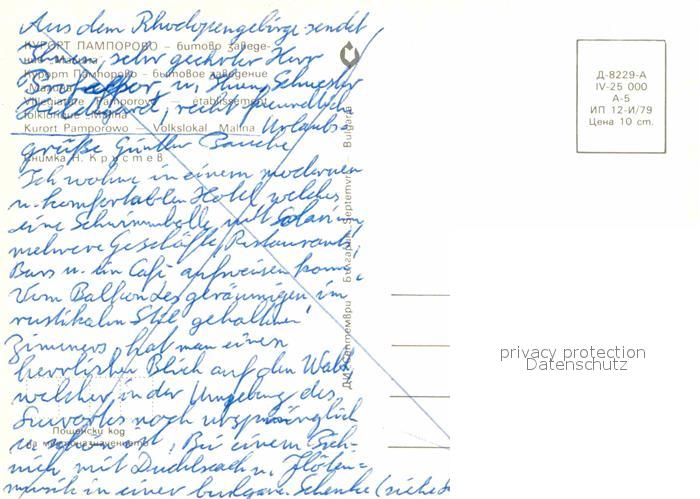 Aus dem Rhodopengebirge sendet
КУРОРТ ПАМПОРОВО – битово заведе-
ние „Малина"
Ihnen, sehr geehrter Herr
Курорт Пампорово – бытовое заведение
„Малина"
Professor u. Ihrer Schwester
Villégiature Pamporovo – établissement
folklorique "Malina"
Hildegard, recht freundliche
Kurort Pamporowo – Volkslokal Malina
Urlaubs-
grüße Günther
Снимка Н. Кръстев
Ich wohne in einem modernen
u. komfortablen Hotel, welches
eine Schwimmhalle mit Solarium,
mehrere Geschäfte, Restaurants,
Bars u. ein Café aufweisen kann.
Vom Balkon des geräumigen im
rustikalen Stil gehaltenen
Zimmers hat man einen
herrlichen Blick auf den Wald,
welcher in der Umgebung des
noch ursprünglich
Пощенски код
на местоназначението
u. schön ist. Bei einem Pick-
nick mit Dudelsack u. Flöten-
musik in einer bulgar. Schenke (siehe
ДИ Септември · България Septemvri · Bulgaria
Д-8229-А
IV-25 000
А-5
ИП 12-И/79
Цена 10 ст.
privacy protection
Datenschutz